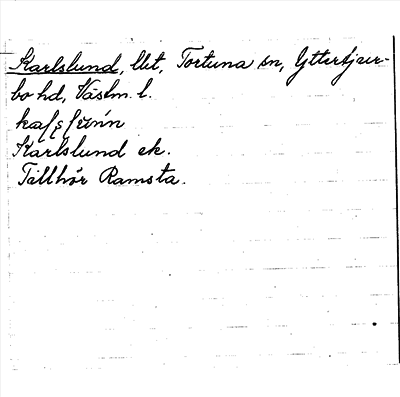 Karlslund, lht, Tortuna sn, Yttertjur-
bo hd, Västm. l.
Karlslund ek.
Tillhör Ramsta.